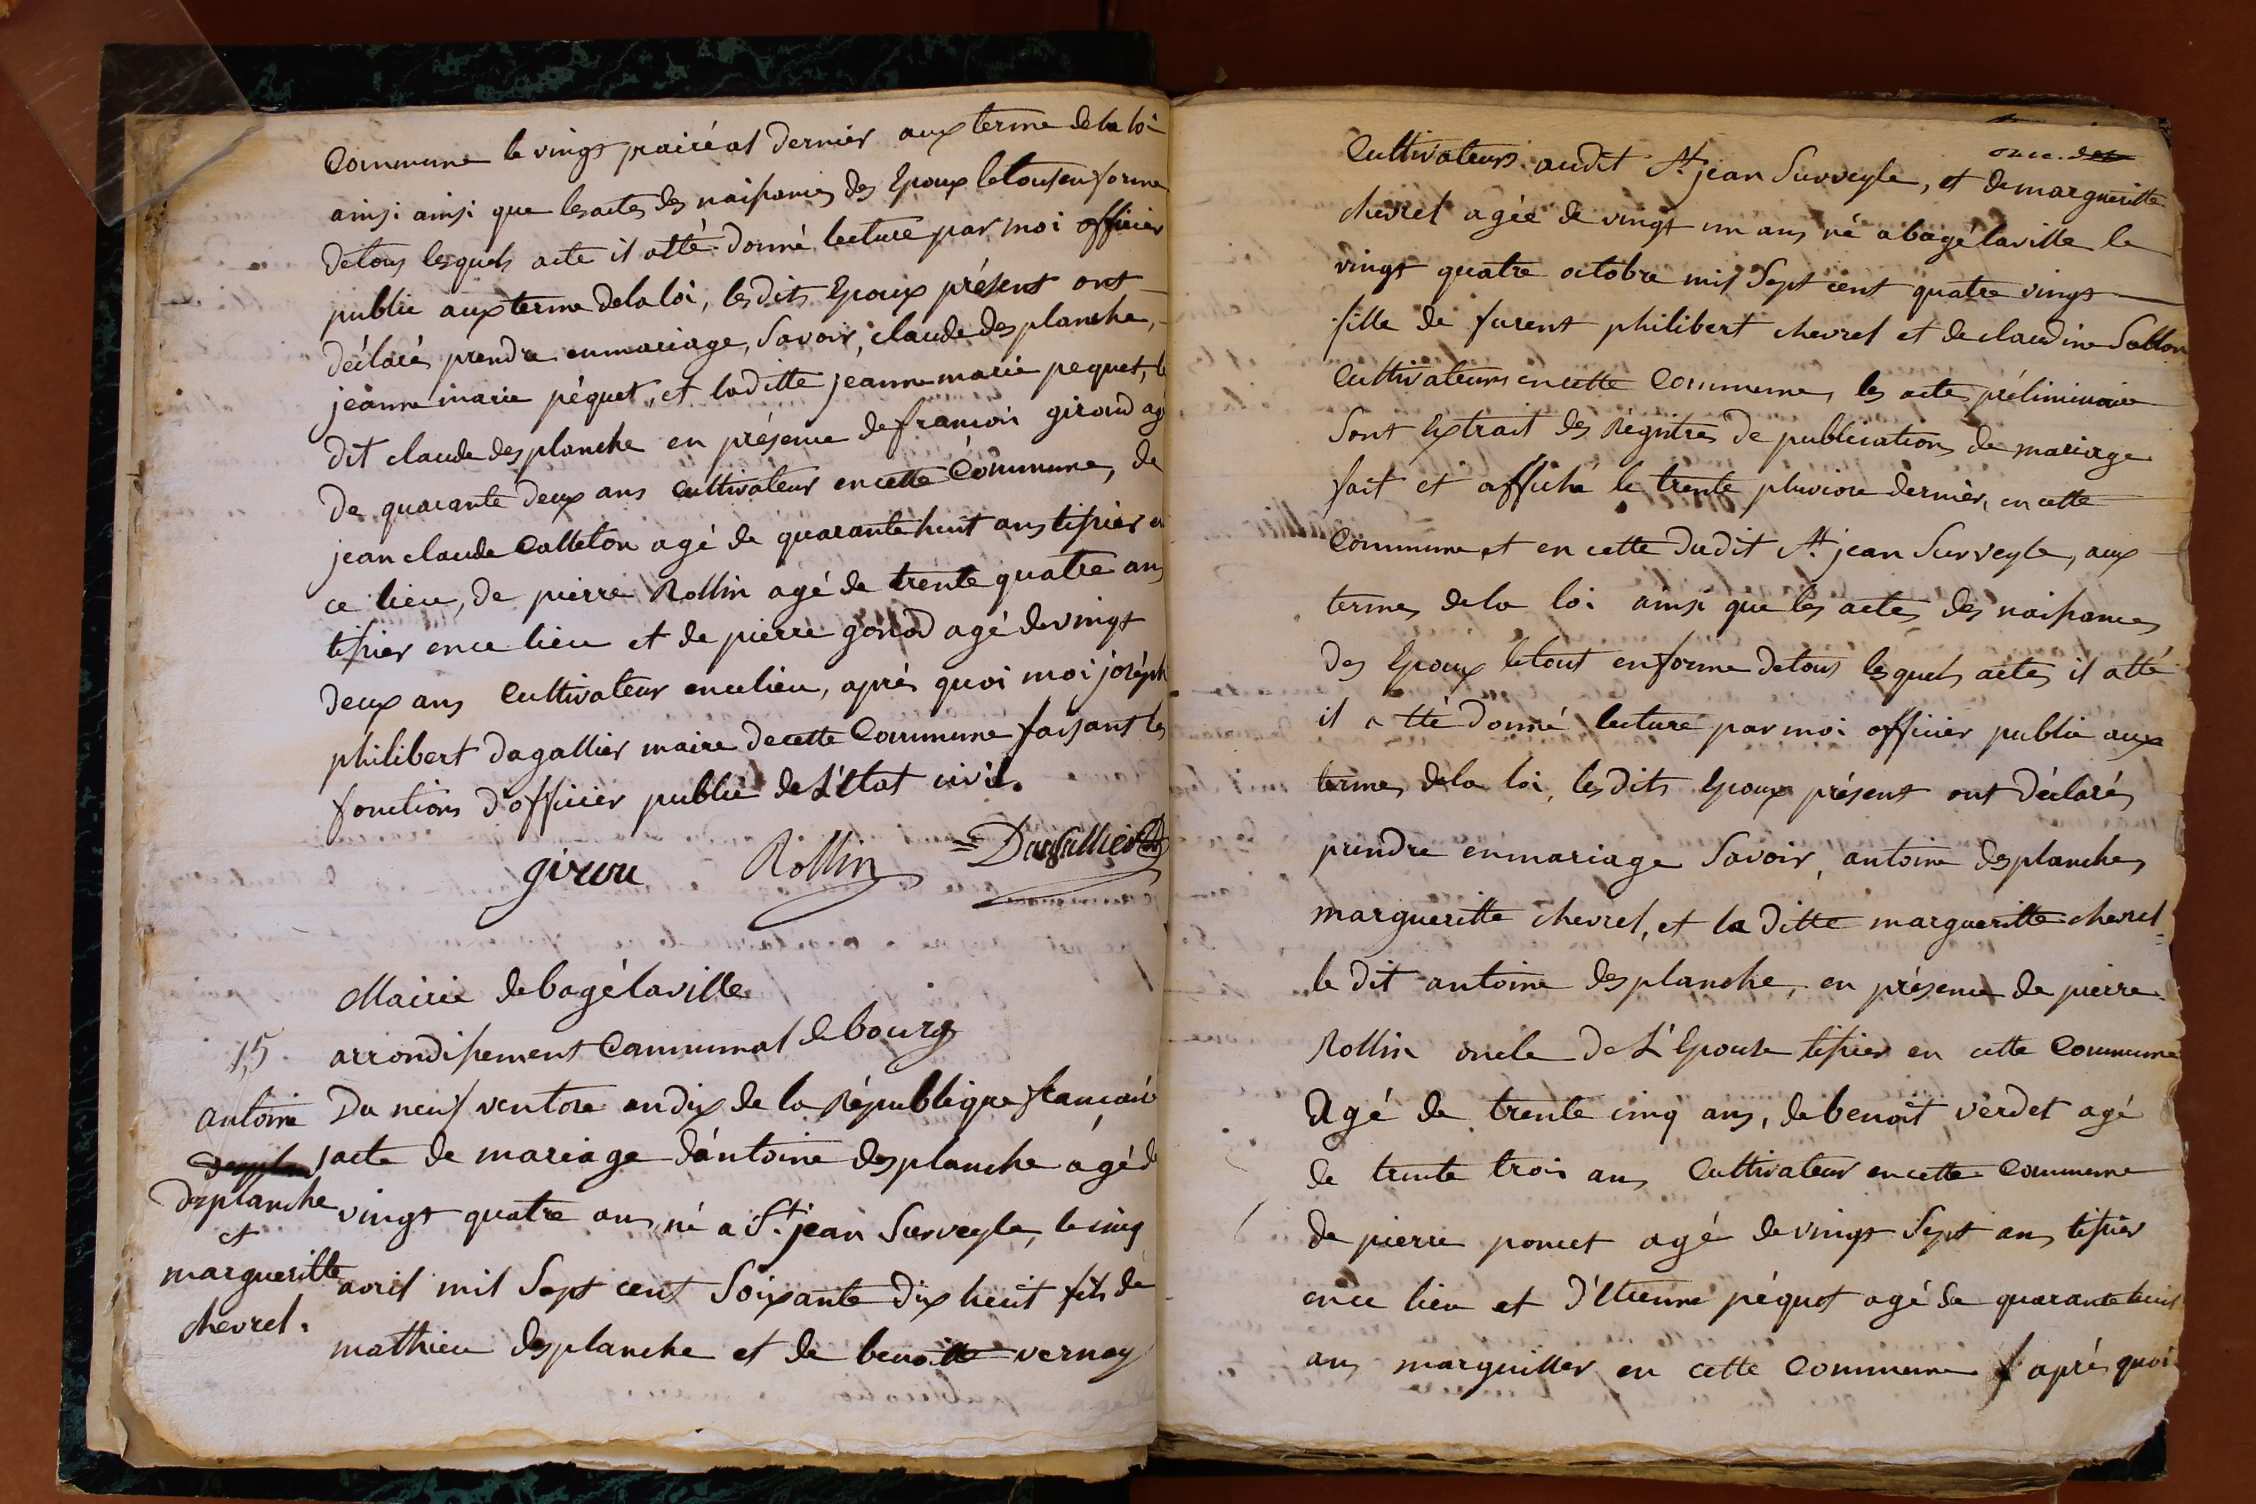 Commune le vingt prairéal dernier aux terme de la loi
ainsi ainsi que les actes des naissances des Epoux le tout en forme
de tous lesquels acte il atté donné lecture par moi officier
public aux terme de la loi, les dits Epoux présent ont
déclaré prendre en mariage, Savoir, claude desplanche,
jeanne marie péquet, et la ditte jeanne marie pequet, le
dit claude desplanche en présence de francoi giroud agé
de quarante deux ans cultivateur en cette Commune, de
jean claude Catteton agé de quarante huit ans tissier en
ce lieu, de pierre Rollin agé de trente quatre ans
tissier en ce lieu et de pierre gonod agé de vingt
deux ans Cultivateur en ce lieu, aprés quoi moi joséph
philibert dagallier maire de cette Commune faisant les
fonctions d'officier public de L'Etat civil.
girou Rollin Dagallier
Mairie de bagé la ville
15 arrondissement Communal de bourg
antoine desplanche et margueritte chevrel.
Du neuf ventose an dix de la République francaise
acte de mariage d'antoine desplanche agé de
vingt quatre ans né a St. jean Surveyle, le cinq
avril mil Sept cent Soixante dix huit fils de
mathieu desplanche et de benoitte vernay
Cultivateurs audit St jean Surveyle, et de margueritte
chevrel agée de vingt un ans né a bagé la ville le
vingt quatre octobre mil Sept cent quatre vingt
fille de furent philibert chevrel et de claudine Sallon
Cultivateurs en cette Commune, les acte préliminaire
Sont Extrait des Régitres de publication de mariage
fait et affiché le trente pluviose dernier, en cette
Commune et en cette dudit St jean Surveyle, aux
termes de la loi ainsi que les actes des naissances
des Epoux le tout en forme de tous lesquels actes il atté
il atté donné lecture par moi officier public aux
termes de la loi, les dits Epoux présent ont déclarés
prendre en mariage Savoir, antoine desplanche,
margueritte chevrel, et la ditte margueritte chevrel
le dit antoine desplanche, en présence de pierre
Rollin oncle de L'Epouse tissier en cette Commune
Agé de trente cinq ans, de benoit verdet agé
de trente trois ans Cultivateur en cette Commune
de pierre poncet agé de vingt Sept ans tissier
en ce lieu et d'Etienne péquet agé de quarante huit
ans marguiller en cette Commune aprés quoi